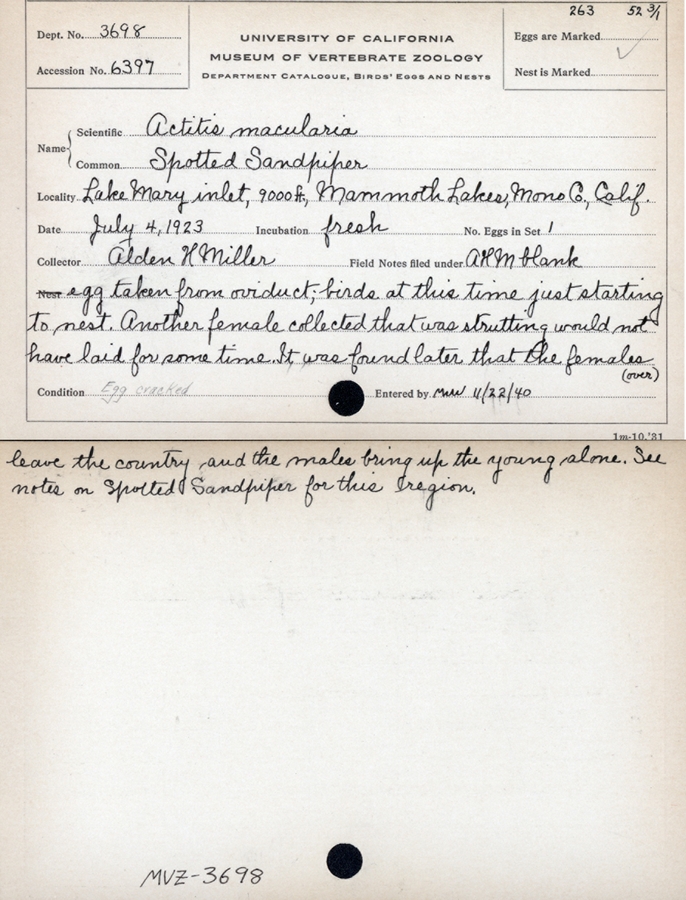 263 52 3/1
Dept. No. 3698
UNIVERSITY OF CALIFORNIA
Eggs are Marked
MUSEUM OF VERTEBRATE ZOOLOGY
Accession No. 6397
DEPARTMENT CATALOGUE, BIRDS' EGGS AND NESTS
Nest is Marked
Name Scientific Actitis macularia
Common Spotted Sandpiper
Locality Lake Mary inlet, 9000 ft, Mammoth Lakes, Mono Co., Calif.
Date July 4, 1923 Incubation fresh No. Eggs in Set 1
Collector Alden H Miller Field Notes filed under AHM blank
Nest egg taken from oviduct; birds at this time just starting
to nest. Another female collected that was strutting would not
have laid for some time. It was found later that the females
(over)
Condition Egg cracked Entered by MWW 11/22/40
1m-10,'31
leave the country and the males bring up the young alone. See
notes on Spotted Sandpiper for this region.
MVZ-3698